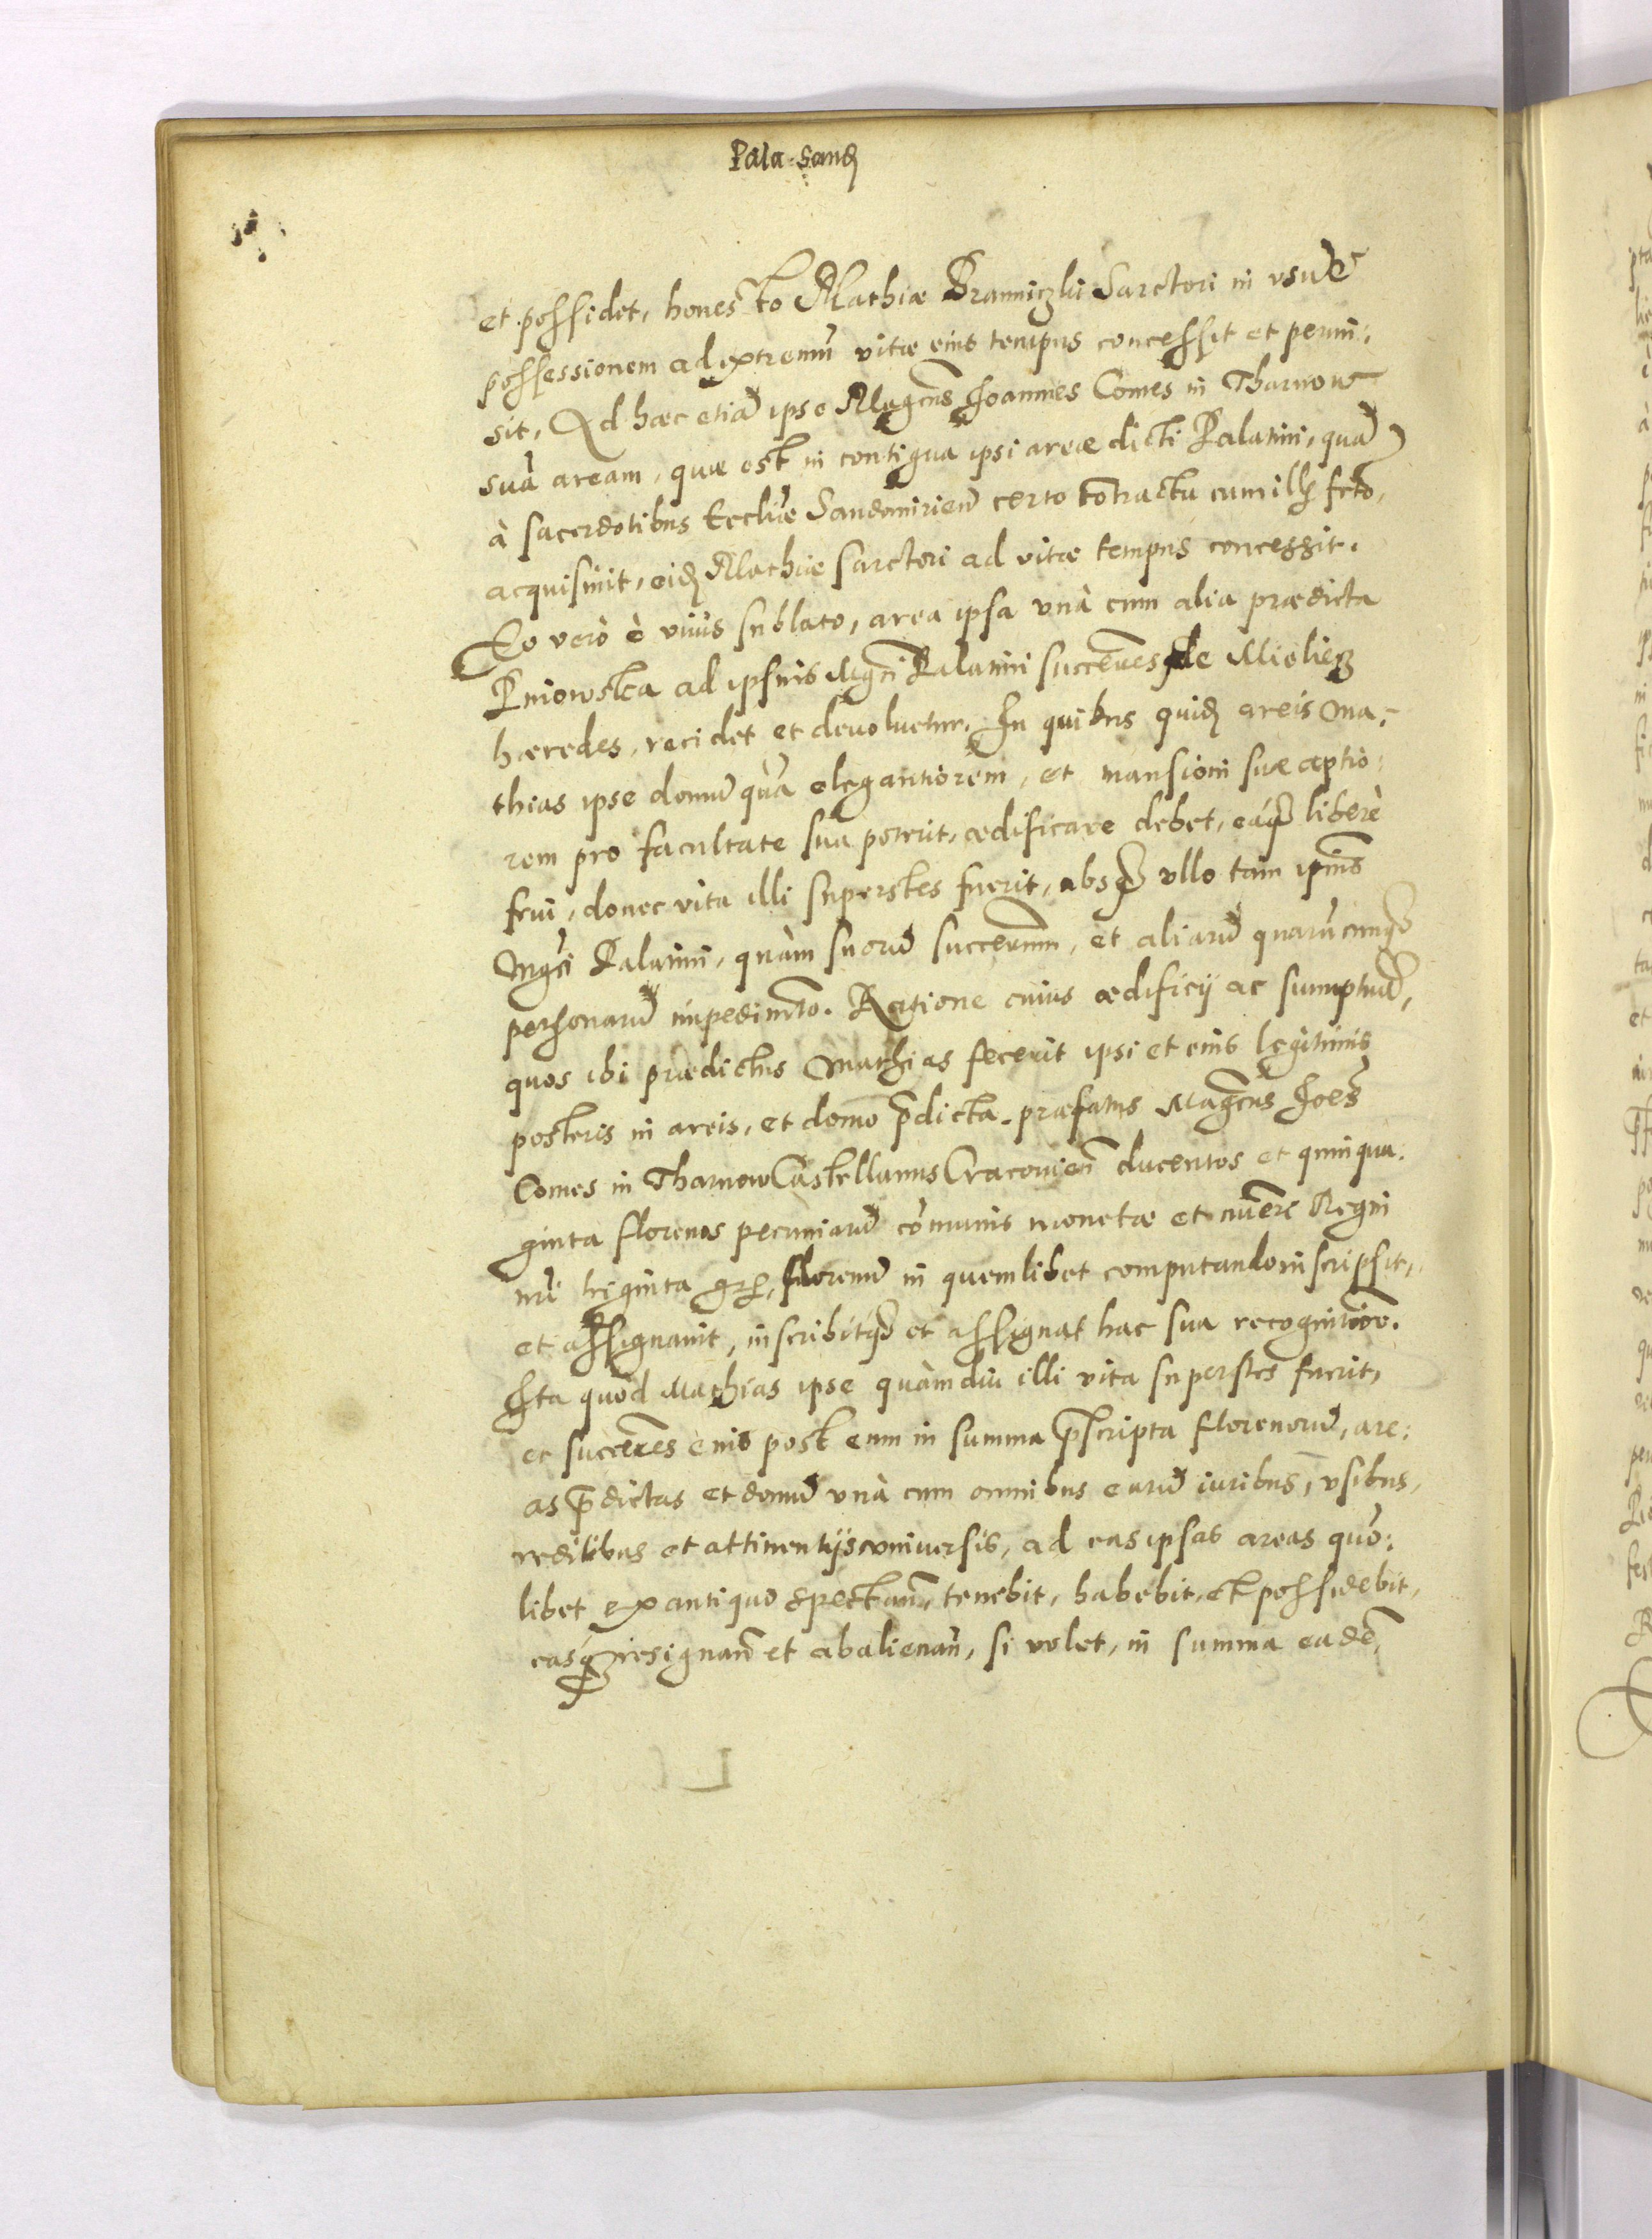 Pala: Sand
et possidet, honesto Mathiæ Branniczki Sarctori in usũ et
possessionem ad extremũ vitæ eius tempus concessit et permi:
sit, Ad hæc etiã ipse Magcũs Joannes Comes in Tharnow
suã aream, quæ est in contigua ipsi areæ dicti Palatini, quã
à sacerdotibus Eccliæ Sandomirien̄ certo cōtractu cum illis fcto,
acquisiuit, eid Mathiæ sarctori ad vitæ tempus concessit.
Eo verò è viuis sublato, area ipsa vnà cum alia prædicta
Kniowska ad ipsius Mgci Palatini succeores de Mieliecz
hæredes, recidet et deuoluetur. In quibus quid areis Ma:
thias ipse domũ quã elegantiorem, et mansioni suæ aptio:
rem pro facultate sua poterit, ædificare debet, eáq liberè
frui, donec vita illi superstes fuerit, absq vllo tam ipsius
Mgci Palatini, quàm suorũ succeorum, et aliarũ quarũcunq
personarũ impedimto. Ratione cuius ædificij ac sumptuũ,
quos ibi prædictus Mathias fecerit ipsi et eius legitimis
posteris in areis, et domo p̄dicta, præfatus Magcus Joēs
Comes in Tharnow Castellanus Cracouien̄ ducentos et quinqua:
ginta florenos pecuniarũ cōmunis monetæ et nūeri Regni
nri triginta gr, florenũ in quemlibet computando inscripsit,
et assignauit, inscribitq et assignat hac sua recognitione.
Ita quòd Mathias ipse quàmdiu illi vita superstes fuerit,
et succeores eius post eum in summa p̄scripta florenorũ, are:
as p̄dictas et domũ vnà cum omnibus earũ iuribus, vsibus,
reditibus et attinentijs vniuersis, ad eas ipsas areas quo:
libet ex antiquo spectan̄, tenebit, habebit, et possidebit,
easq resignan̄ et abalienan̄, si volet, in summa eadē,